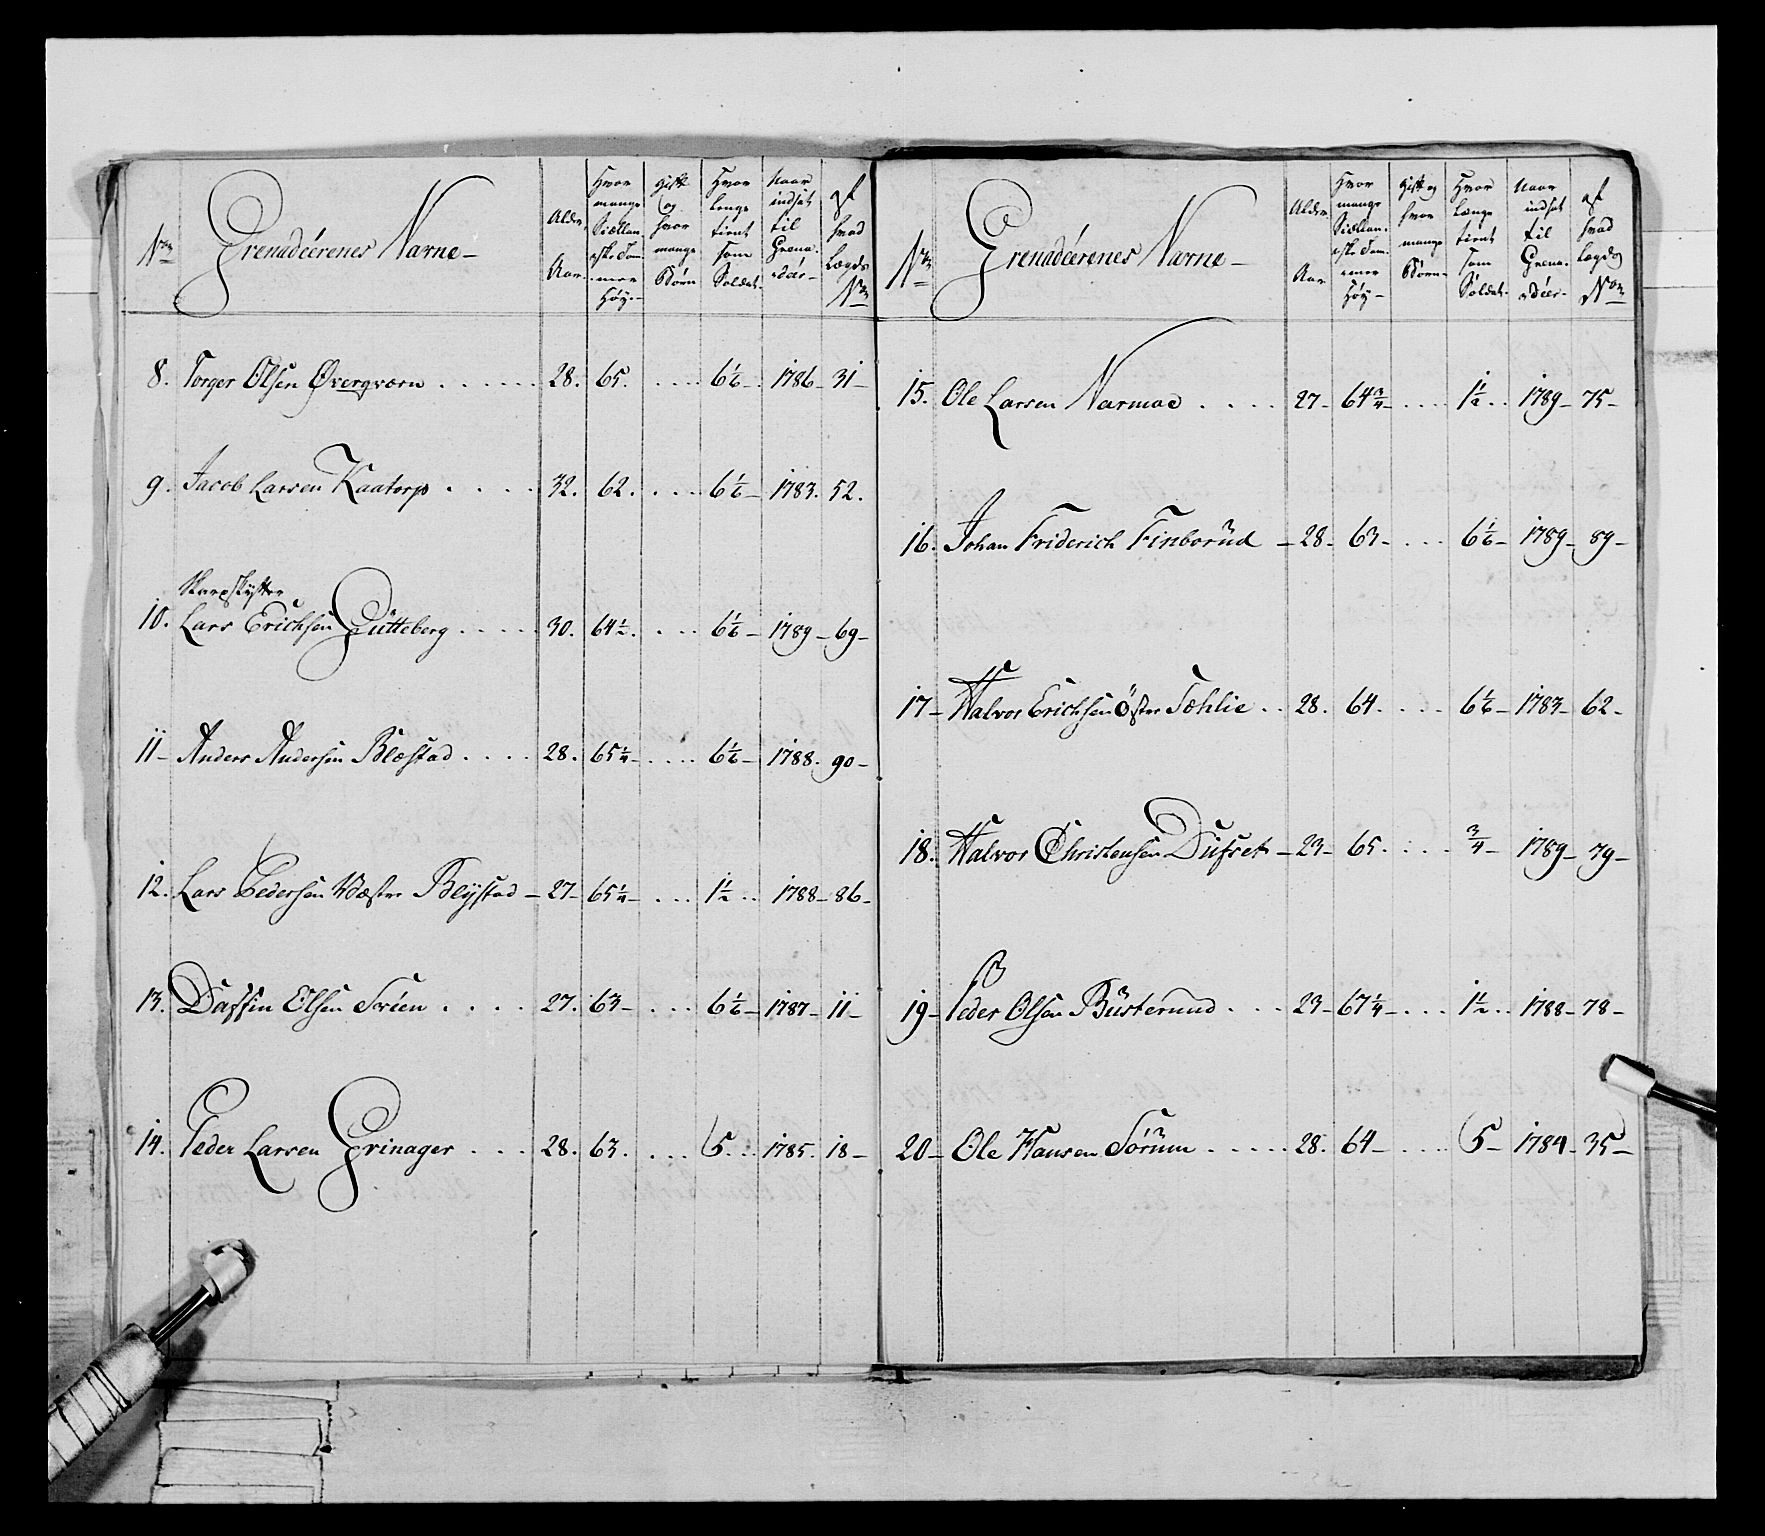 Nr Grenadéerenes Navne Alder Aar Hvor mange Siællandske Tommer Høy Gift og hvor mange Børn Hvor lenge tient som Soldat Naar indsat til Grenadéer af hvad Lægds Nr
8. Torger Olsen Øvergværn 28. 65. 6 1/6 1786 31
9. Jacob Larsen Kaatorp 32. 62. 6 1/6 1783. 52.
Skarpskytter
10. Lars Erichsen Gütteberg 30. 64 1/2. 6 1/6 1789 69
11 Anders Andersen Blæstad 28. 65 1/4 6 1/6 1788. 90
12. Lars Pedersen Væstre Blÿstad 27 65 1/4 1 1/2 1788 86
13. Daffin Olsen Sorien 27. 63 6 1/6 1787 11
14. Peder Larsen Grinager 28. 63. 5. 1785. 18
Nr Grenadéerenes Navne Alder Aar Hvor mange Siællandske Tommer Høy Gift og hvor mange Børn Hvor længe tient som Soldat Naar indsat til Grenadéer af hvad Lægds Nr
15. Ole Larsen Narmoe 27 64 3/4 1 1/2 1789 75
16. Johan Friderich Finborüd 28 63 6 1/6 1789 89
17 Halvor Erichsen Öster Sæhlie 28. 64. 6 1/6 1783 62
18. Halvor Christensen Dufset 23 65. 3/4 1789 79
19 Peder Olsen Büsterund 23 67 1/4 1 1/2 1788 78
20 Ole Hansen Sörüm 28. 64 5 1784 35